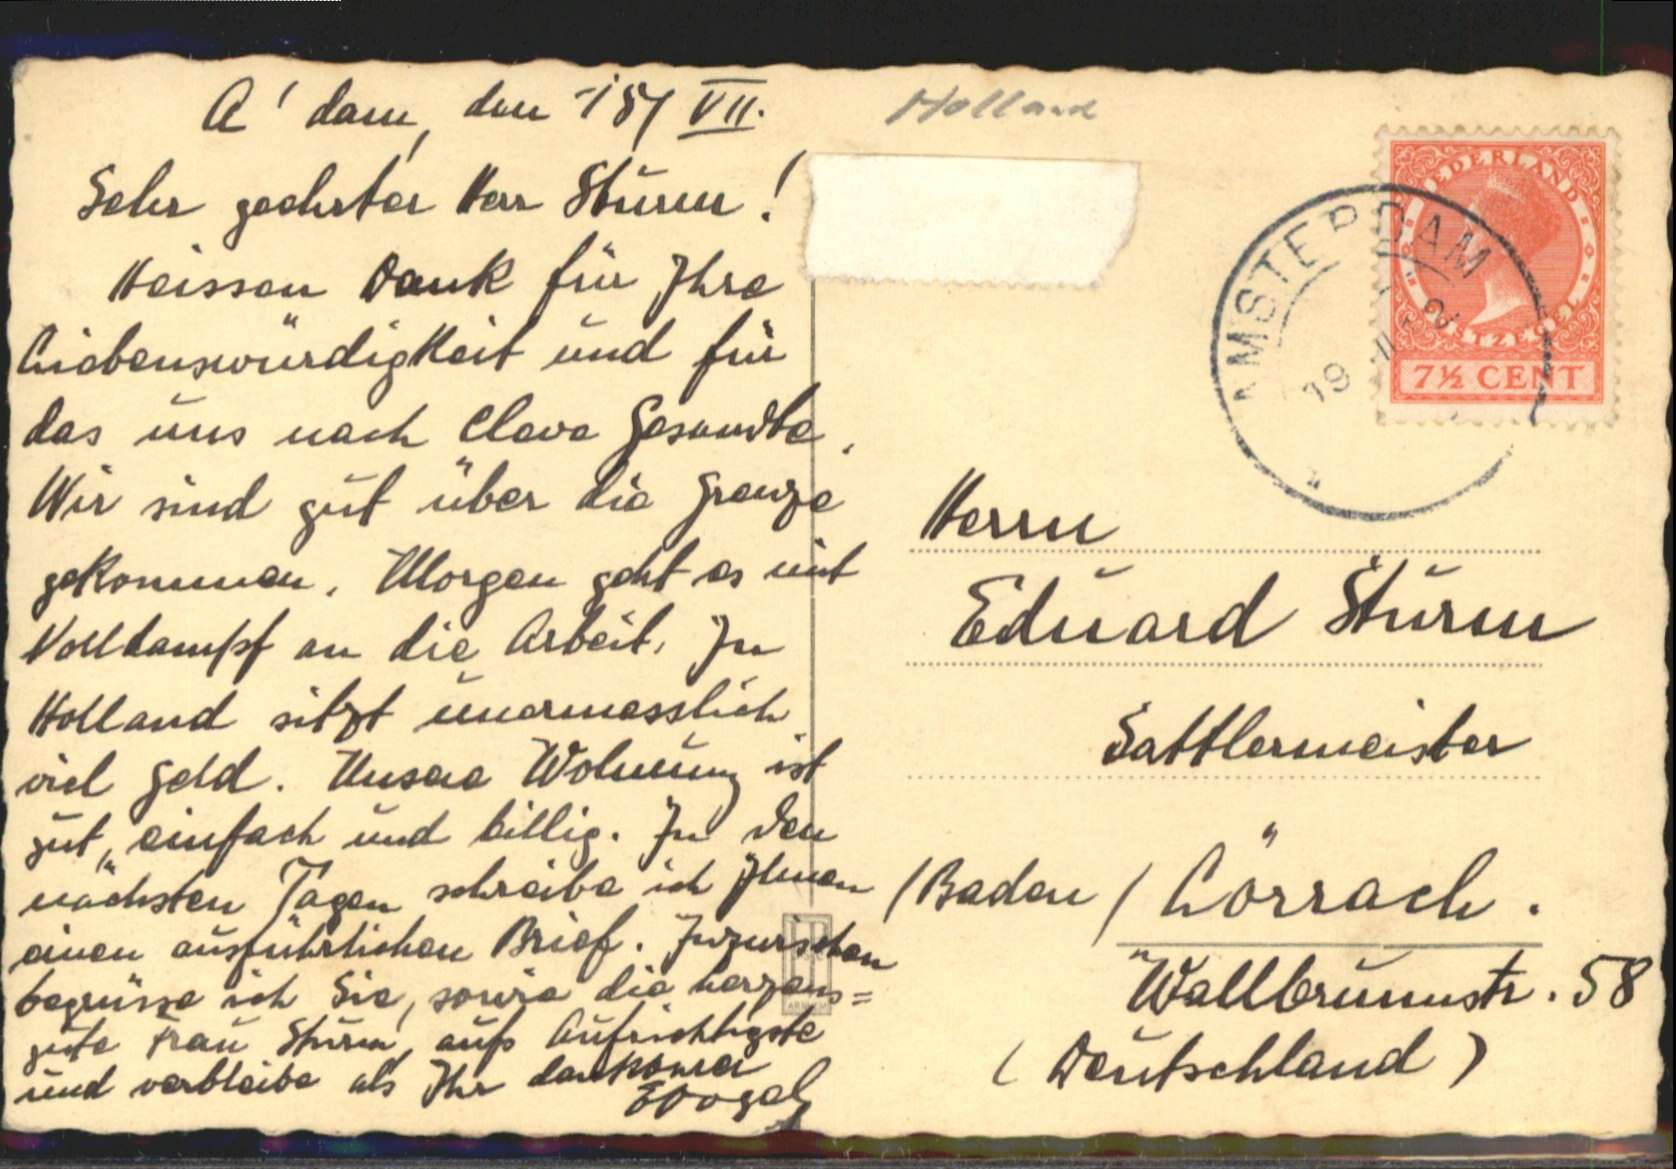 A'dam, den 18/VII.
Sehr geehrter Herr Sturm!
Heissen Dank für Ihre
Liebenswürdigkeit und für
das uns nach Cleve Gesandte.
Wir sind gut über die Grenze
gekommen. Morgen geht es mit
Volldampf an die Arbeit. In
Holland sitzt unermesslich
viel Geld. Unsere Wohnung ist
gut, einfach und billig. In den
nächsten Tagen schreibe ich Ihnen
einen ausführlichen Brief. Inzwischen
begrüsse ich Sie, sowie die herzens=
gute Frau Sturm, aufs Aufrichtigste
und verbleibe als Ihr dankbarer
EVogel
Holland
NEDERLAND
POSTZEGEL
7½ CENT
AMSTERDAM
19
Herrn
Eduard Sturm
Sattlermeister
(Baden) Lörrach.
Wallbrunnstr. 58
(Deutschland)